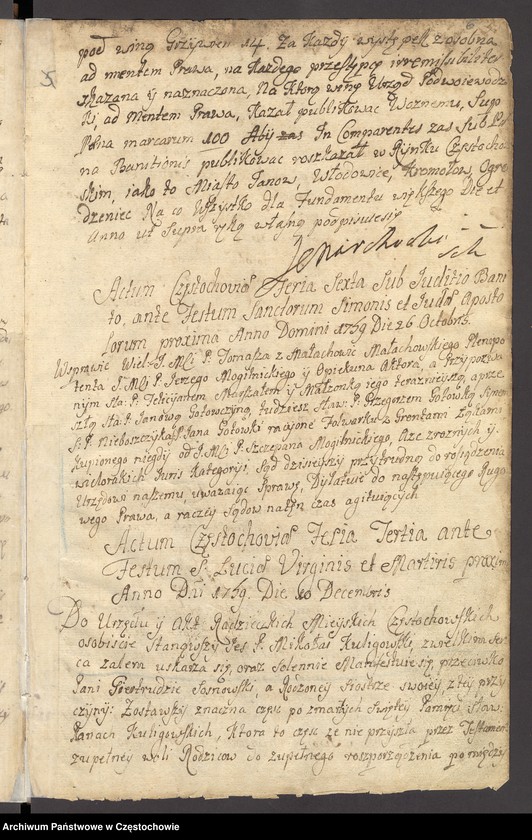 pod winą Grzywien 14. Za Każdy występek z osobna
ad mentem Prawa, na Każdego przestępcę irremisibiliter
wskazana y naznaczona, Na Ktorą winę Urząd Podwoiewodz
Ki, ad Mentem Prawa, Kazał publikować Woznemu, Sugo
Pæna marcarum 100 Aby zas In Comparentes zas Sub Pæ
na Banitionis publikować roskazał w Rynku Częstocho
skim, iako to Miasto Janow, Włodowice, Kromołow, Ogro
dzieniec Na co Wszystko dla Fundamentu większego Die et
Anno ut Supra ręką własną podpisuiesię
JMarchocki
Actum Częstochoviæ Feria Sexta Sub Juditio Bani
to, ante Festum Sanctorum Simonis et Judæ Aposto
lorum proxima Anno Domini 1759 Die 26 Octobris.
Wsprawie Wiel: J. MCi P. Tomasza z Małachowic Małachowskiego Plenipo
tenta J. MCi P. Jerzego Mogilnickiego y Opiekuna Aktora, a Przypozwa
nym Sła: P. Felicjantem Marszałem y Małżonką iego terazniejszą, a prze
szłą Sła: P. Janową Gołowczyną, tudziesz Sław: P. Grzegorzem Gołowką Simen
S: P. Nieboszczyka P. Jana Gołowki racyone Folwarku z Gruntami Zgliami
Kupionego niegdy od J. MCi P. Szczepana Mogilnickiego, Aże zroznych y
wielorakich Juris Kategoryi, Sąd dzisieyszy przytrudno do rosądzenia
Urzędowi naszemu, uważaiąc Sprawę, Dylatuie do następuiącego Rugo
wego Prawa, a raczey Sądow naten czas agituiących
Actum Częstochoviæ Feria Tertia ante
Festum S. Luciæ Virginis et Martiris proxim
Anno Dni 1759. Die 10 Decembris
Do Urzędu y Akt Radzieckich Mieyskich Częstochowskich
osobiście Stanąwszy Ses P. Mikołai Kuligowski, zwielkim ser
ca żalem uskarża się, oraz Solennie Manifestuie się, przeciwko
Pani Giertrudzie Sosnowski, a Rodzoney Siostrze swoiey, z tey przy
czyny: Zostawszy znaczna częsc po zmarłych Swiętey Pamięci Sław:
Panach Kuligowskich, Ktora to częsc że nie przyszła przez Testamen
zupełney woli Rodzicow do zupełnego rosporządzenia pomiędzy
Archiwum Państwowe w Częstochowie